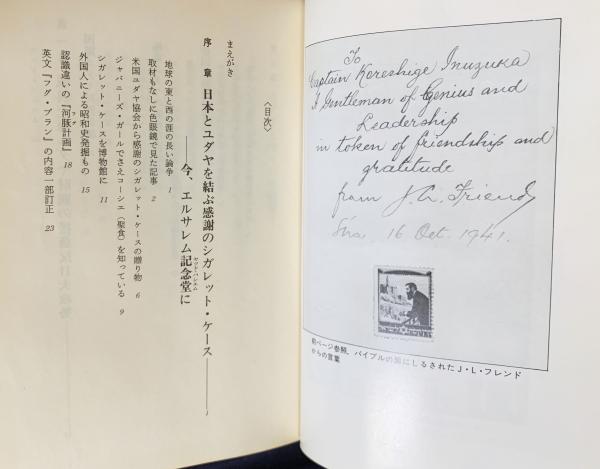 To
Captain Koreshige Inuzuka
A Gentleman of Genius and
Leadership
in token of friendship and
gratitude
from
16 Oct. 1941.
前ページ参照。バイブルの扉にしるされたJ・L・フレンド
からの言葉
〈目次〉
まえがき
序章 日本とユダヤを結ぶ感謝のシガレット・ケース
――今、エルサレム記念堂に
ヤド・バシェム
地球の東と西の涯の長い論争 1
取材もなしに色眼鏡で見た記事 2
米国ユダヤ協会から感謝のシガレット・ケースの贈り物 6
ジャパニーズ・ガールでさえコーシェ(聖食)を知っている 9
シガレット・ケースを博物館に 11
外国人による昭和史発掘もの 15
認識違いの『河豚計画』 18
英文『フグ・プラン』の内容一部訂正 23